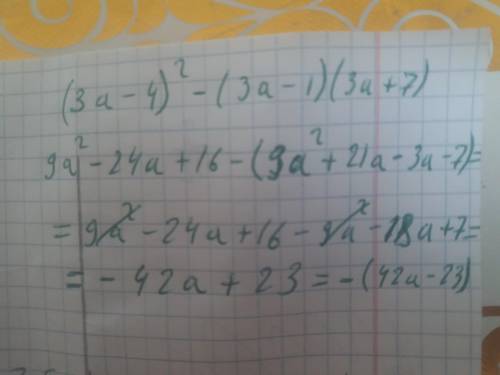 (3a-4)² - (3a-1)(3a+7)
9a² - 24a + 16 - (9a² + 21a - 3a - 7) =
= 9a² - 24a + 16 - 9a² - 18a + 7 =
= - 42a + 23 = -(42a - 23)